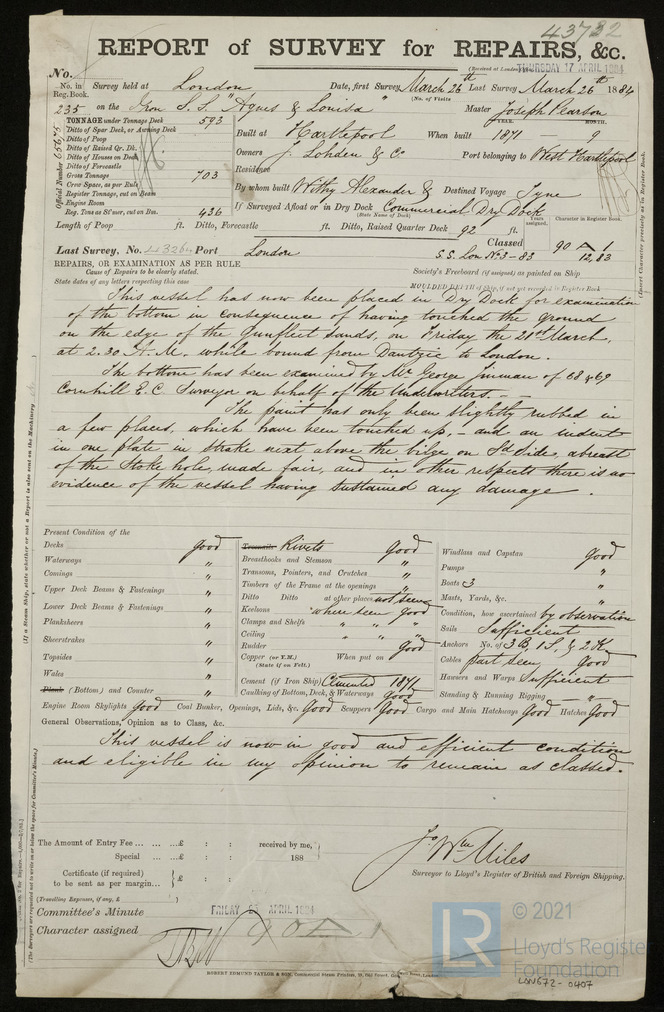 43732
REPORT of SURVEY for REPAIRS, &c.
(Received at London
THURSDAY 17 APRIL 1884
No.
No. in Reg. Book. Survey held at London Date, first Survey March 26th Last Survey March 26th 1884
(No. of Visits
235 on the Iron S.S. "Agnes & Louisa" Master Joseph Pearson
TONNAGE under Tonnage Deck 593
Ditto of Spar Deck, or Awning Deck
Ditto of Poop
Ditto of Raised Qr. Dk.
Ditto of Houses on Deck
Ditto of Forecastle
Gross Tonnage 703
Crew Space, as per Rule
Register Tonnage, cut on Beam
Engine Room
Reg. Tons as St'mer, cut on Bm. 436
Official Number
Built at Hartlepool When built YEAR. 1871 — MONTH. 9
Owners J. Lohden & Co. Port belonging to West Hartlepool
Residence
By whom built Withy Alexander & Destined Voyage Tyne
If Surveyed Afloat or in Dry Dock Commercial Dry Dock
(State Name of Dock)
Length of Poop ft. Ditto, Forecastle ft. Ditto, Raised Quarter Deck 92 ft.
Years assigned. Character in Register Book.
Last Survey, No. 43264 Port London Classed 90 A 1
S.S. Lon No. 3 - 83 12,83
(Insert Character precisely as in Register Book.
REPAIRS, OR EXAMINATION AS PER RULE
Society's Freeboard (if assigned) as painted on Ship
Cause of Repairs to be clearly stated.
State dates of any letters respecting this case
This vessel has now been placed in Dry Dock for examination
of the bottom in consequence of having touched the ground
on the edge of the Gunfleet sands, on Friday the 21st March,
at 2.30 A.M. while bound from Dantzic to London.
The bottom has been examined by Mr. George Jinman of 68 & 69
Cornhill E.C. Surveyor on behalf of the Underwriters. —
The paint has only been slightly rubbed in
a few places, which have been touched up, — and an indent
in one plate in strake next above the bilge on Sd side, abreast
of the Stoke hole, made fair, and in other respects there is no
evidence of the vessel having sustained any damage.
(If a Steam Ship, state whether or not a Report is also sent on the Machinery
Present Condition of the
Decks good
Waterways "
Comings "
Upper Deck Beams & Fastenings "
Lower Deck Beams & Fastenings "
Planksheers "
Sheerstrakes "
Topsides "
Wales "
Plank (Bottom) and Counter "
Treenails Rivets good
Breasthooks and Stemson "
Transoms, Pointers, and Crutches "
Timbers of the Frame at the openings "
Ditto Ditto at other places not seen
Keelsons "where seen good
Clamps and Shelfs " " "
Ceiling " " "
Rudder good
Copper (or Y.M.) When put on
(State if on Felt.)
Cement (if Iron Ship) Cemented 1871
Caulking of Bottom, Deck, & Waterways good
Windlass and Capstan good
Pumps "
Boats 3 "
Masts, Yards, &c. "
Condition, how ascertained by observation
Sails Sufficient
Anchors No. of 3 B, 1 S, & 2 K
Cables part seen, good
Hawsers and Warps Sufficient
Standing & Running Rigging "
Engine Room Skylights Good Coal Bunker, Openings, Lids, &c. Good Scuppers Good Cargo and Main Hatchways Good Hatches Good
General Observations, Opinion as to Class, &c.
This vessel is now in good and efficient condition
and eligible in my opinion to remain as classed.
The Amount of Entry Fee ... ... ...£ : : received by me,
Special ... ...£ : : 188
Certificate (if required) to be sent as per margin... £ : :
(Travelling Expenses, if any, £ )
Jo Wm Miles
Surveyor to Lloyd's Register of British and Foreign Shipping.
Committee's Minute
FRIDAY APRIL 1884
Character assigned 90 A 1
(The Surveyors are requested not to write on or below the space for Committee's Minute.)
ROBERT EDMUND TAYLOR & SON, Commercial Steam Printers, 19, Old Street,
LR
© 2021
Lloyd's Register
Foundation
LON672-0407